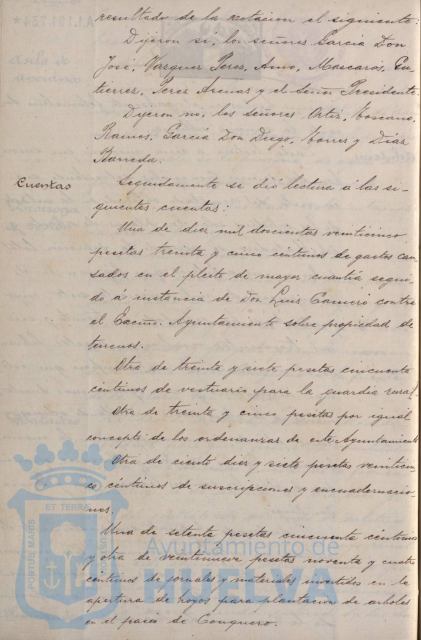 resultado de la votacion el siguiente:
Dijeron sí, los señores García Don
José, Vazquez Perez, Amo, Mascarós, Gu-
tierrez, Perez Arenas y el Señor Presidente
Dijeron no, los señores Ortiz, Toscano,
Ramos, García Don Diego, Torres y Diaz
Barreda.
Cuentas
Seguidamente se dió lectura á las si-
guientes cuentas:
Una de diez mil doscientas veinticinco
pesetas treinta y cinco céntimos de gastos cau-
sados en el pleito de mayor cuantía segui-
do á instancia de Don Luis contra
el Excmo. Ayuntamiento sobre propiedad de
terrenos.
Otra de treinta y siete pesetas cincuenta
céntimos de vestuario para la guardia rural.
Otra de treinta y cinco pesetas por igual
concepto de los ordenanzas de este Ayuntamiento
Otra de ciento diez y siete pesetas veinticin-
co céntimos de suscripciones y encuadernacio-
nes.
Una de setenta pesetas cincuenta céntimos
y otra de veintinueve pesetas noventa y cuatro
céntimos de jornales y materiales invertidos en la
apertura de hoyos para plantacion de arboles
en el paseo de Conquero.
PORTUS MARIS
ET TERRAE
Ayuntamiento de
HUELVA